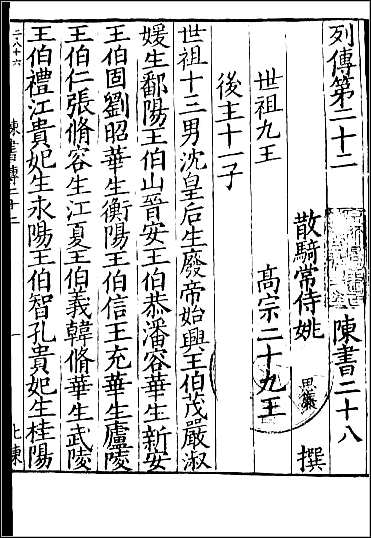 列傳第二十二　陳書二十八
散騎常侍姚　思廉　撰
世祖九王　高宗二十九王
後主十一子
世祖十三男沈皇后生廢帝始興王伯茂嚴淑
媛生鄱陽王伯山晉安王伯恭潘容華生新安
王伯固劉昭華生衡陽王伯信王充華生廬陵
王伯仁張脩容生江夏王伯義韓脩華生武陵
王伯禮江貴妃生永陽王伯智孔貴妃生桂陽
二八十六　陳書傳二十二　一